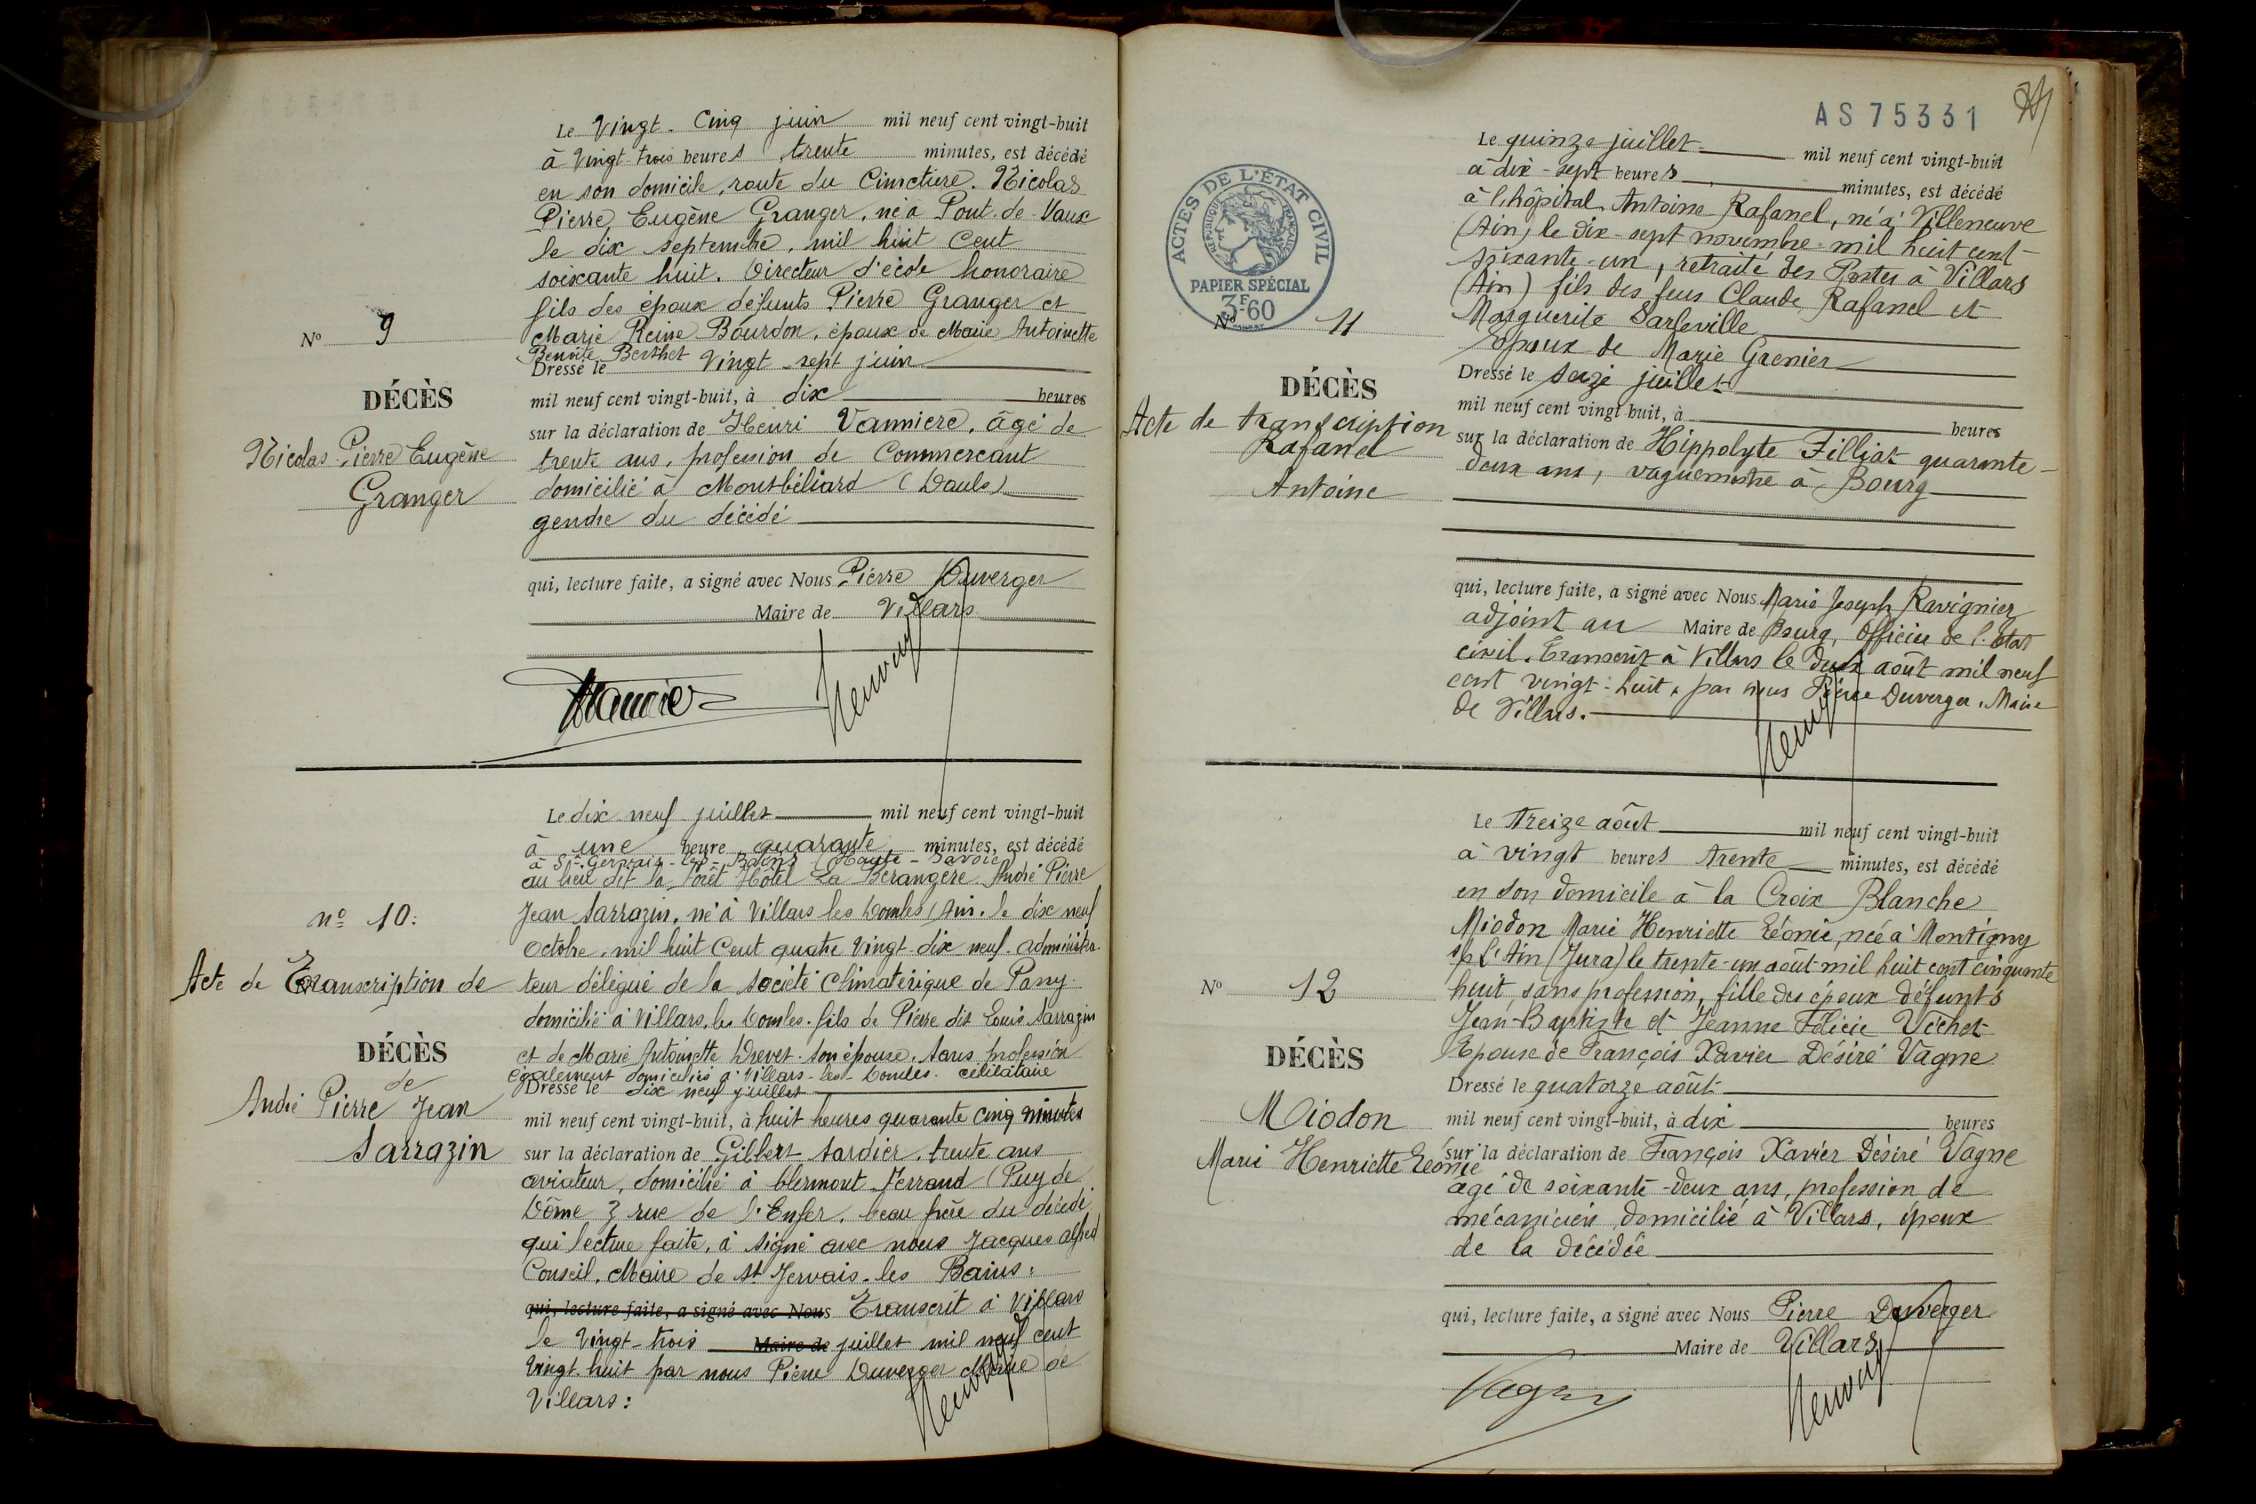 Le Vingt-Cinq juin mil neuf cent vingt-huit
à Vingt-trois heures trente minutes, est décédé
en son domicile, route du Cimetière. Nicolas
Pierre Eugène Granger, né à Pont-de-Vaux
le dix septembre, mil huit Cent
soixante huit. Directeur d'école honoraire
fils des époux défunts Pierre Granger et
Marie Reine Bourdon, époux de Marie Antoinette
Benoîte Berthet
Dressé le Vingt-sept juin
mil neuf cent vingt-huit, à dix heures
sur la déclaration de Henri Vannière, âgé de
trente ans, profession de Commerçant
domicilié à Montbéliard (Doubs)
gendre du décédé
qui, lecture faite, a signé avec Nous Pierre Duverger
Maire de Villars
No 9
DÉCÈS
Nicolas Pierre Eugène
Granger
Le dix-neuf juillet mil neuf cent vingt-huit
à une heure quarante minutes, est décédé
à St-Gervais-les-Bains (Haute-Savoie)
au lieu dit la Forêt Hôtel La Bérangère. André Pierre
Jean Sarrazin, né à Villars les Dombes (Ain. le dix neuf
Octobre, mil huit Cent quatre Vingt-dix neuf. administra-
teur délégué de la Société Climatérique de Passy
domicilié à Villars, les Dombes. fils de Pierre dit Louis Sarrazin
et de Marie Antoinette Drevet son épouse. Sans profession
également domiciliés à Villars-les-Dombes. célibataire
Dressé le dix neuf juillet
mil neuf cent vingt-huit, à huit heures quarante cinq minutes
sur la déclaration de Gilbert Sardier, trente ans
aviateur, domicilié à Clermont-Ferrand (Puy de
Dôme 3 rue de l'Enfer. beau frère du décédé
qui lecture faite, a signé avec nous Jacques Alfred
Conseil, Maire de St Gervais-les Bains:
qui, lecture faite, a signé avec Nous Transcrit à Villars
le Vingt-trois Maire de juillet mil neuf cent
Vingt-huit par nous Pierre Duverger Maire de
Villars:
no 10:
Acte de Transcription de
DÉCÈS
de
André Pierre Jean
Sarrazin
AS 75331
ACTES DE L'ÉTAT CIVIL
RÉPUBLIQUE FRANÇAISE
PAPIER SPÉCIAL
3F60
Le quinze juillet mil neuf cent vingt-huit
à dix-sept heures minutes, est décédé
à l'hôpital, Antoine Rafanel, né à Villeneuve
(Ain) le dix-sept novembre mil huit cent-
soixante-un, retraité des Postes à Villars
(Ain) fils des feus Claude Rafanel et
Marguerite Sarseville
Epoux de Marie Grenier
Dressé le seize juillet
mil neuf cent vingt-huit, à heures
sur la déclaration de Hippolyte Filliat quarante-
deux ans, vaguemestre à Bourg
qui, lecture faite, a signé avec Nous Marie Joseph Ravignier
adjoint au Maire de Bourg, Officier de l'état
civil. Transcrit à Villars le deux août mil neuf
cent vingt-huit, par nous Pierre Duverger, Maire
de Villars.
No 11
DÉCÈS
Acte de transcription
Rafanel
Antoine
Le treize août mil neuf cent vingt-huit
à vingt heures trente minutes, est décédé
en son domicile à la Croix Blanche
Miodon Marie Henriette Léonie, née à Montigny
s/ l'Ain (Jura) le trente-un août mil huit cent cinquante
huit, sans profession, fille des époux défunts
Jean-Baptiste et Jeanne Félicie Vichet
Epouse de François Xavier Désiré Vagne
Dressé le quatorze août
mil neuf cent vingt-huit, à dix heures
sur la déclaration de François Xavier Désiré Vagne
âgé de soixante-deux ans, profession de
mécanicien, domicilié à Villars, époux
de la décédée
qui, lecture faite, a signé avec Nous Pierre Duverger
Maire de Villars
Vagne
No 12
DÉCÈS
Miodon
Marie Henriette Léonie